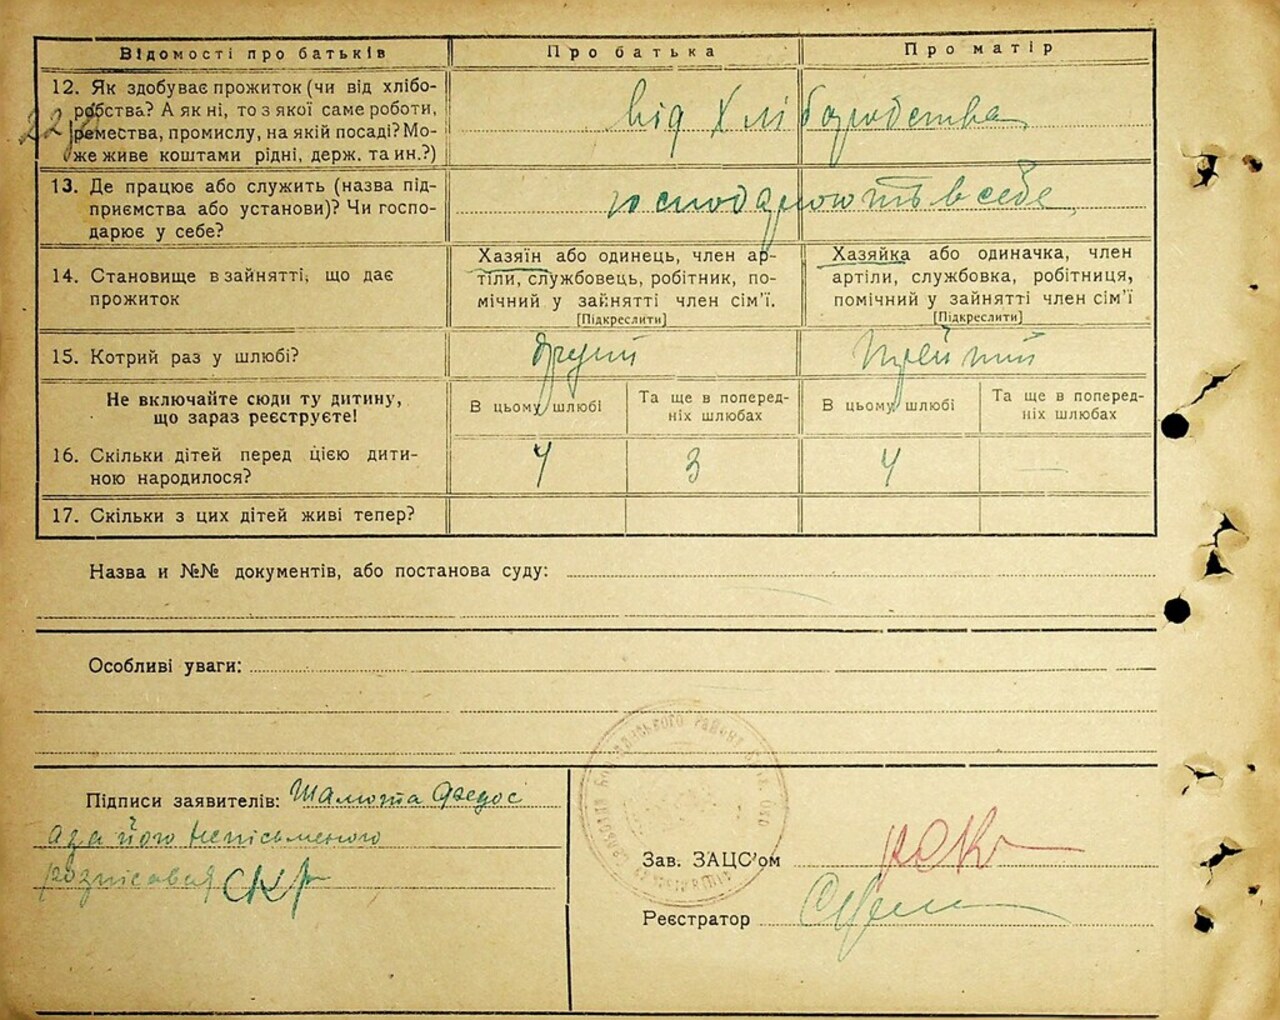 Відомості про батьків
Про батька
Про матір
12. Як здобуває прожиток (чи від хлібо-
робства? А як ні, то з якої саме роботи,
ремества, промислу, на якій посаді? Мо-
же живе коштами рідні, держ. та ин.?)
від Хліборобства
13. Де працює або служить (назва під-
приємства або установи)? Чи госпо-
дарює у себе?
господарюють в себе
14. Становище в зайнятті, що дає
прожиток
Хазяїн або одинець, член ар-
тіли, службовець, робітник, по-
мічний у зайнятті член сім'ї.
[Підкреслити]
Хазяйка або одиначка, член
артіли, службовка, робітниця,
помічний у зайнятті член сім'ї
[Підкреслити]
15. Котрий раз у шлюбі?
другий
Не включайте сюди ту дитину,
що зараз реєструєте!
В цьому шлюбі
Та ще в поперед-
ніх шлюбах
В цьому шлюбі
Та ще в поперед-
ніх шлюбах
16. Скільки дітей перед цією дити-
ною народилося?
4 3 4 —
17. Скільки з цих дітей живі тепер?
Назва и №№ документів, або постанова суду:
Особливі уваги:
Підписи заявителів: Шамота Федос
а за його неписьменого
розписався
Зав. ЗАЦС'ом
Реєстратор